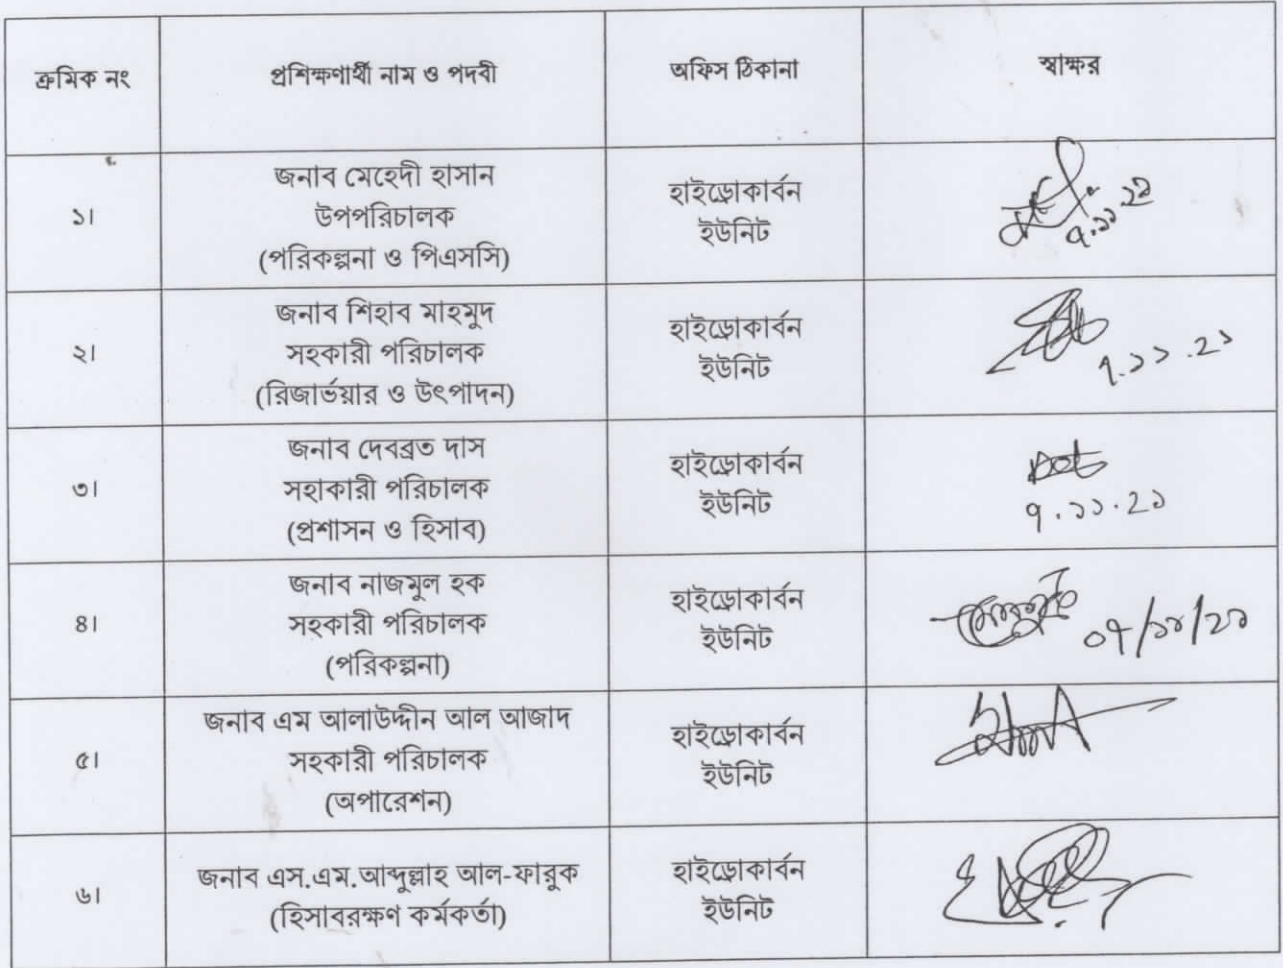 ক্রমিক নং
প্রশিক্ষণার্থী নাম ও পদবী
অফিস ঠিকানা
স্বাক্ষর
১।
জনাব মেহেদী হাসান
উপপরিচালক
(পরিকল্পনা ও পিএসসি)
হাইড্রোকার্বন
ইউনিট
৭.১১.২১
২।
জনাব শিহাব মাহমুদ
সহকারী পরিচালক
(রিজার্ভয়ার ও উৎপাদন)
হাইড্রোকার্বন
ইউনিট
৭.১১.২১
৩।
জনাব দেবব্রত দাস
সহাকারী পরিচালক
(প্রশাসন ও হিসাব)
হাইড্রোকার্বন
ইউনিট
৭.১১.২১
৪।
জনাব নাজমুল হক
সহকারী পরিচালক
(পরিকল্পনা)
হাইড্রোকার্বন
ইউনিট
০৭/১১/২১
৫।
জনাব এম আলাউদ্দীন আল আজাদ
সহকারী পরিচালক
(অপারেশন)
হাইড্রোকার্বন
ইউনিট
৬।
জনাব এস.এম.আব্দুল্লাহ আল-ফারুক
(হিসাবরক্ষণ কর্মকর্তা)
হাইড্রোকার্বন
ইউনিট